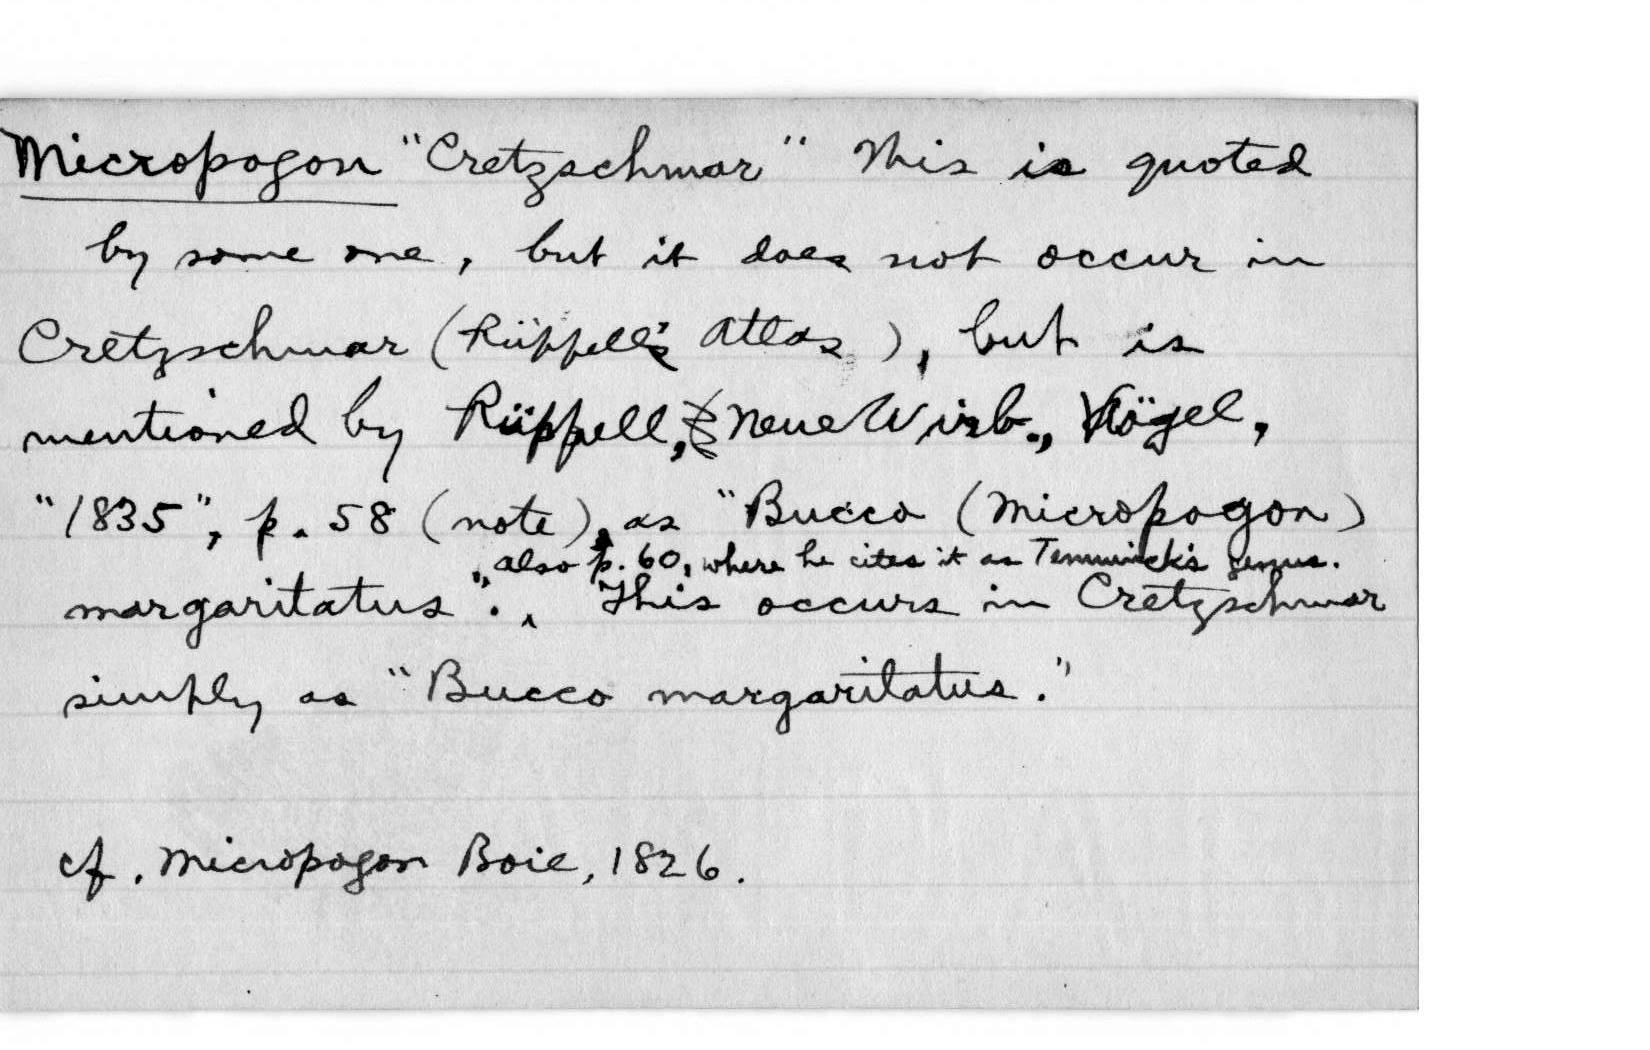 Micropogon "Cretzschmar" This is quoted
by some one, but it does not occur in
Cretzschmar (Rüppell's Atlas), but is
mentioned by Rüppell, Neue Wirb., Vögel,
"1835", p. 58 (note), as "Bucco (Micropogon)
, also p. 60, where he cites it as Temminck's genus.
margaritatus". This occurs in Cretzschmar
simply as "Bucco margaritatus."
cf. Micropogon Boie, 1826.